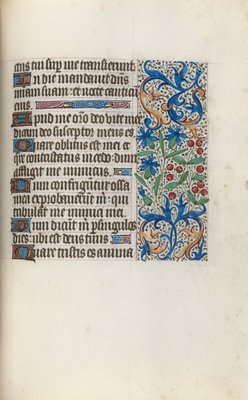 tuus sup me transierunt
In die mandauit dns
miam suam: et nocte cantici
eius.
Apud me oro deo vite mee
dicam deo susceptor meus es
Quare oblitus es mei: et
quare contristatus incedo: dum
affligit me inimicus.
Dum confringuntur ossa
mea exprobauerunt m: qui
tribulant me inimici mei.
Dum dicunt m p singulos
dies: ubi est deus tuus
Quare tristis es anima